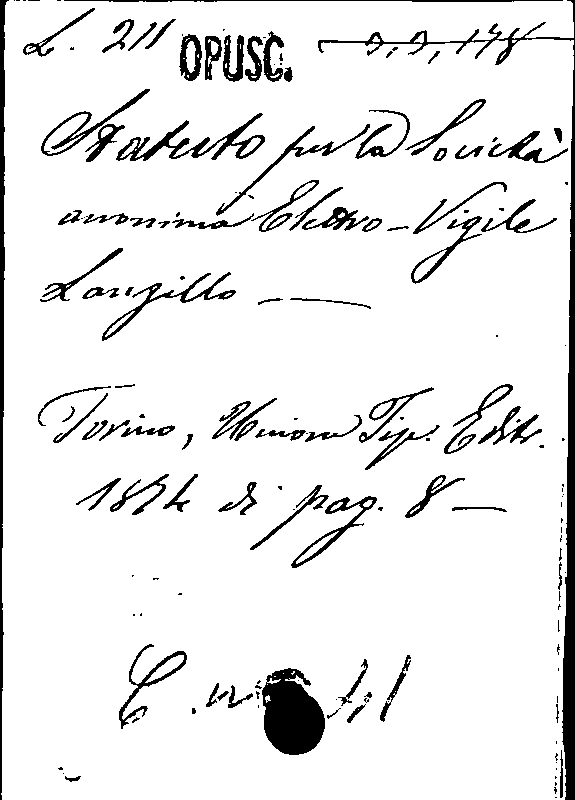 L. 211 OPUSC. 3,3,178
Statuto per la Società
anonima Elettro-Vigile
Langillo —
Torino, Unione Tip. Editr.
1874 di pag. 8 —
C.